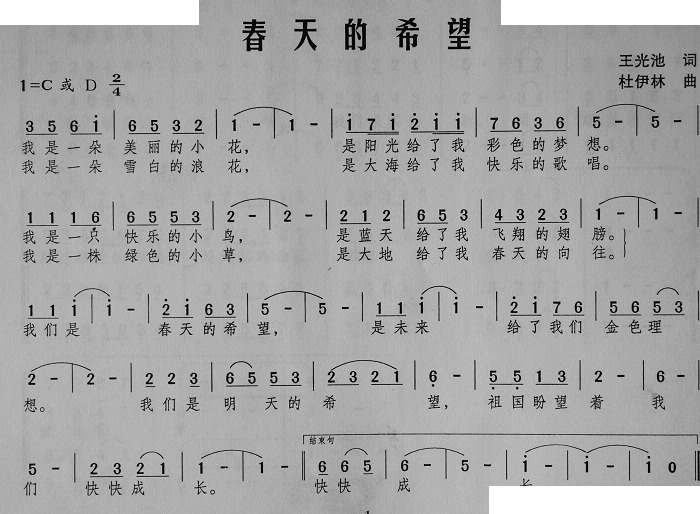 春天的希望
王光池 词
1=C 或 D 2/4
杜伊林 曲
3 5 6 i | 6 5 3 2 | 1 - | 1 - | i 7 i 2 i i | 7 6 3 6 | 5 - | 5 - |
我是一朵 美丽的小 花, 是阳光给了我 彩色的梦 想。
我是一朵 雪白的浪 花, 是大海给了我 快乐的歌 唱。
1 1 1 6 | 6 5 5 3 | 2 - | 2 - | 2 1 2 | 6 5 5 3 | 4 3 2 3 | 1 - | 1 - |
我是一只 快乐的小 鸟, 是蓝天 给了我 飞翔的翅 膀。
我是一株 绿色的小 草, 是大地 给了我 春天的向 往。
1 1 i | i - | 2 i 6 3 | 5 - | 5 - | 1 1 i | i - | 2 i 7 6 | 5 6 5 3 |
我们是 春天的希 望, 是未来 给了我们 金色理
2 - | 2 - | 2 2 3 | 6 5 5 3 | 2 3 2 1 | 6 - | 5 5 1 3 | 2 - | 6 - |
想。 我们是 明天的希 望, 祖国盼望 着 我
结束句
5 - | 2 3 2 1 | 1 - | 1 - | 6 6 5 | 6 - | i - | i - | i 0 ‖
们 快快成 长。 快快 成